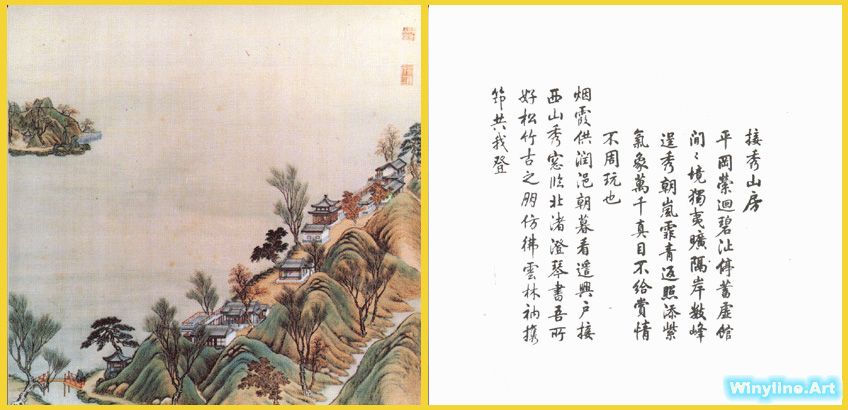 接秀山房
平岡縈迴碧沚停蓄虛館
閒〻境獨夷曠隔岸數峰
逞秀朝嵐霏青返照添紫
氣象萬千真目不給賞情
不周玩也
烟霞供潤浥朝暮看遙興戶接
西山秀窓臨北渚澄琴書吾所
好松竹古之朋仿彿雲林衲攜
笻共我登
Winyline.Art